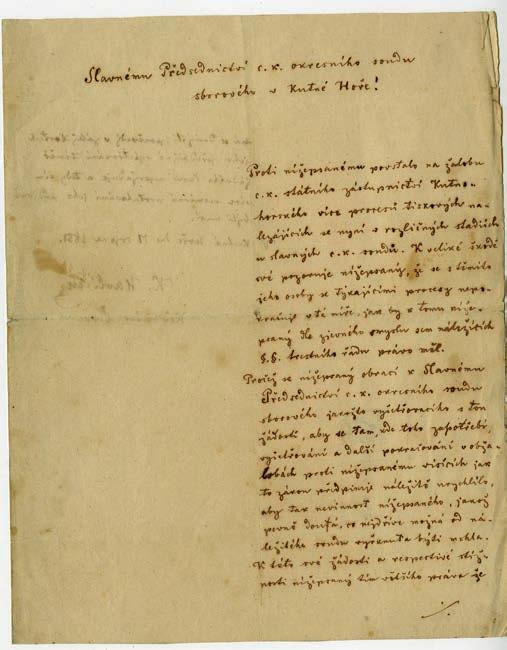 Slavnému Předsednictví c. k. okresního soudu
sborového v Kutné Hoře!
Proti nížepsanému povstalo na žalobu
c. k. státního zástupnictví Kutno-
horského více procesů tiskových na-
lezajících se nyní v rozličných stadiích
u slavných c. k. soudů. K veliké škodě
své pozoruje nížepsaný, že se s těmito
jeho osoby se týkajícími procesy nepo-
kračuje v té míře, jak by k tomu níže-
psaný dle zjevného smyslu sem náležících
§. §. trestního řádu právo měl.
Pročež se nížepsaný obrací k Slavnému
Předsednictví c. k. okresního soudu
sborového jakožto vyšetřovacího s tou
žádostí, aby se tam, kde toho zapotřebí,
vyšetřování a další pokračování v obža-
lobách proti nížepsanému visících jak
to zákon předpisuje náležitě urychlilo,
aby tak nevinnost nížepsaného, jakož
pevně doufá, co nejdříve možná od ná-
ležitého soudu vyřknuta býti mohla.
K této své žádosti a respective stíž-
nosti nížepsaný tím většího práva že